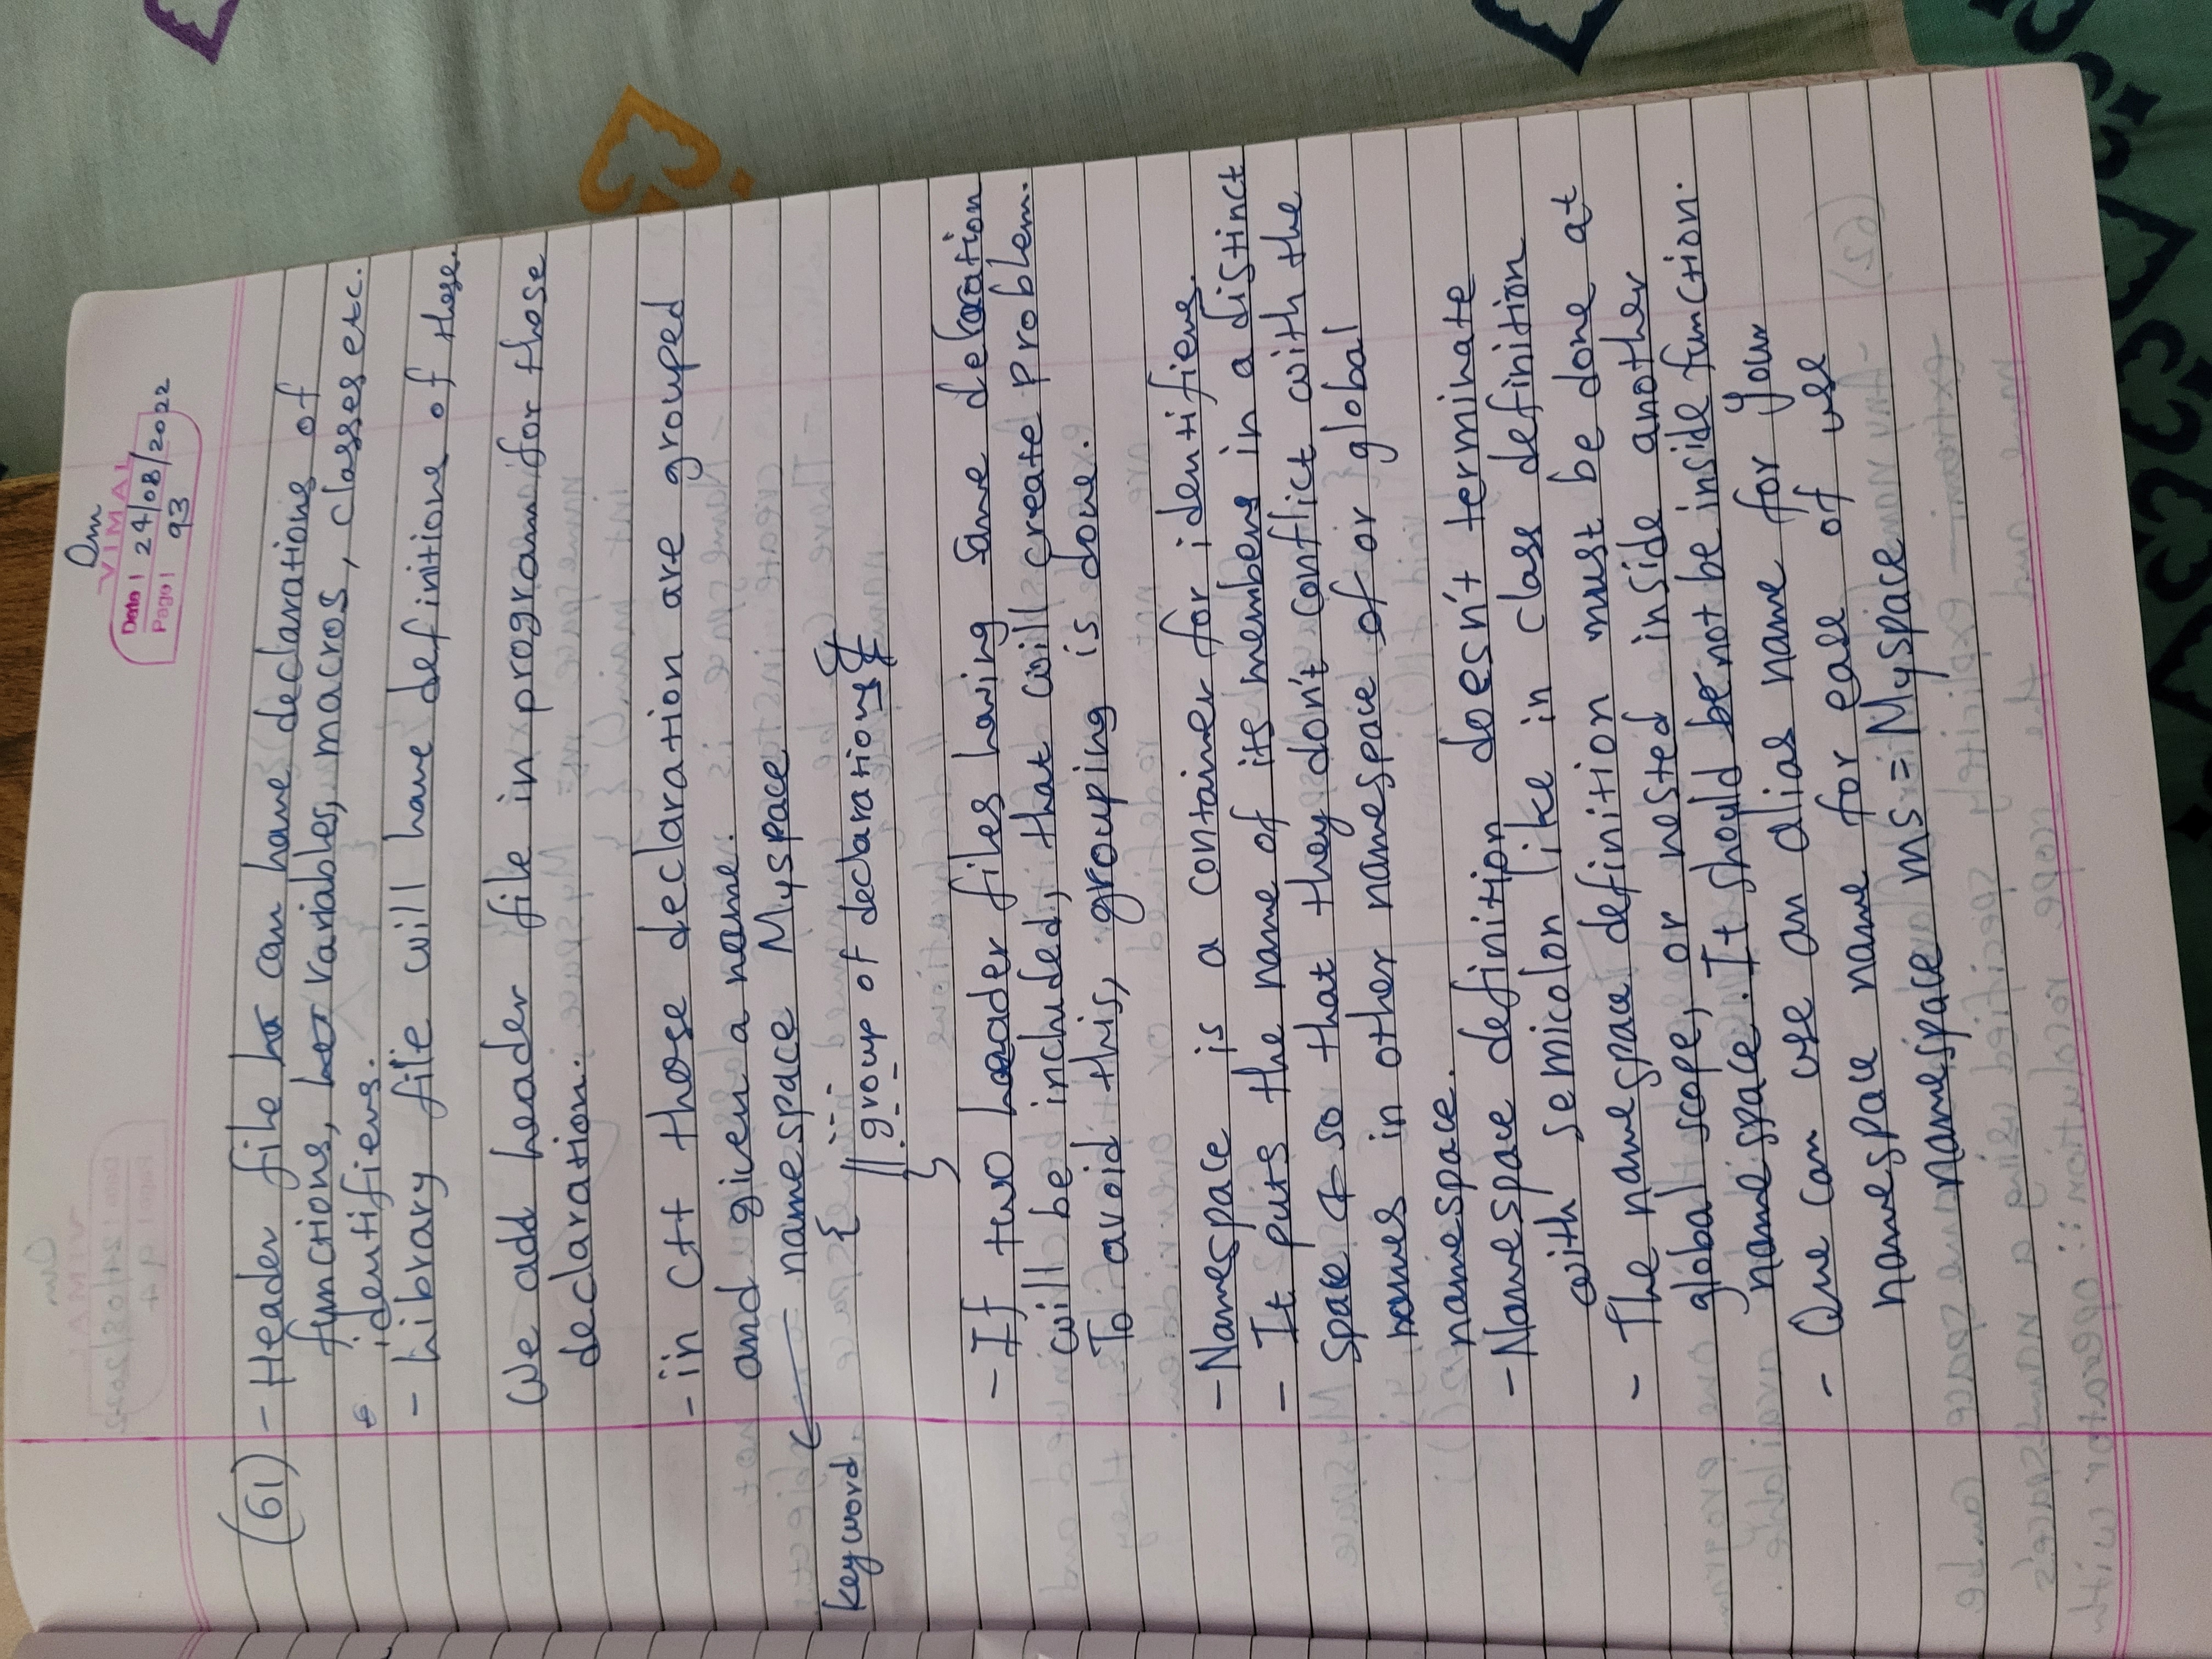 Om
VIMAL
Date | 24/08/2022
Page | 93
(61) - Header file can have declarations of
functions, variables, macros, classes etc.
identifiers.
- Library file will have definitions of those.
We add header file in program for those
declaration.
- in C++ those declaration are grouped
and given a name.
namespace Myspace
keyword
{ ---
// group of declarations
---
}
- If two header files having same decloration
will be included, that will create problem.
To avoid this, grouping is done.
- Namespace is a container for identifiers.
- It puts the name of its members in a distinct
space so that they don't conflict with the
names in other namespace or global
namespace.
- Namespace definition doesn't terminate
with semicolon like in class definition
- The namespace definition must be done at
global scope, or nested inside another
namespace. It should not be inside function.
- One can use an alias name for your
namespace name for ease of use
namespace ms = Myspace